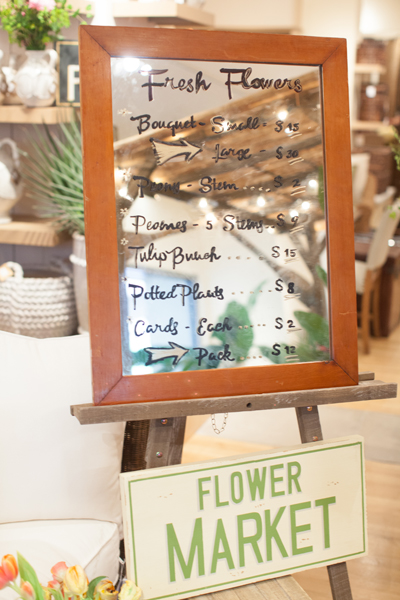 Fresh Flowers
Bouquet - Small - $15
Large - $30
Peony - Stem .... $2
Peonies - 5 Stems .. $9
Tulip Bunch .... $15
Potted Plants .... $8
Cards - Each ..... $2
Pack .... $12
FLOWER
MARKET